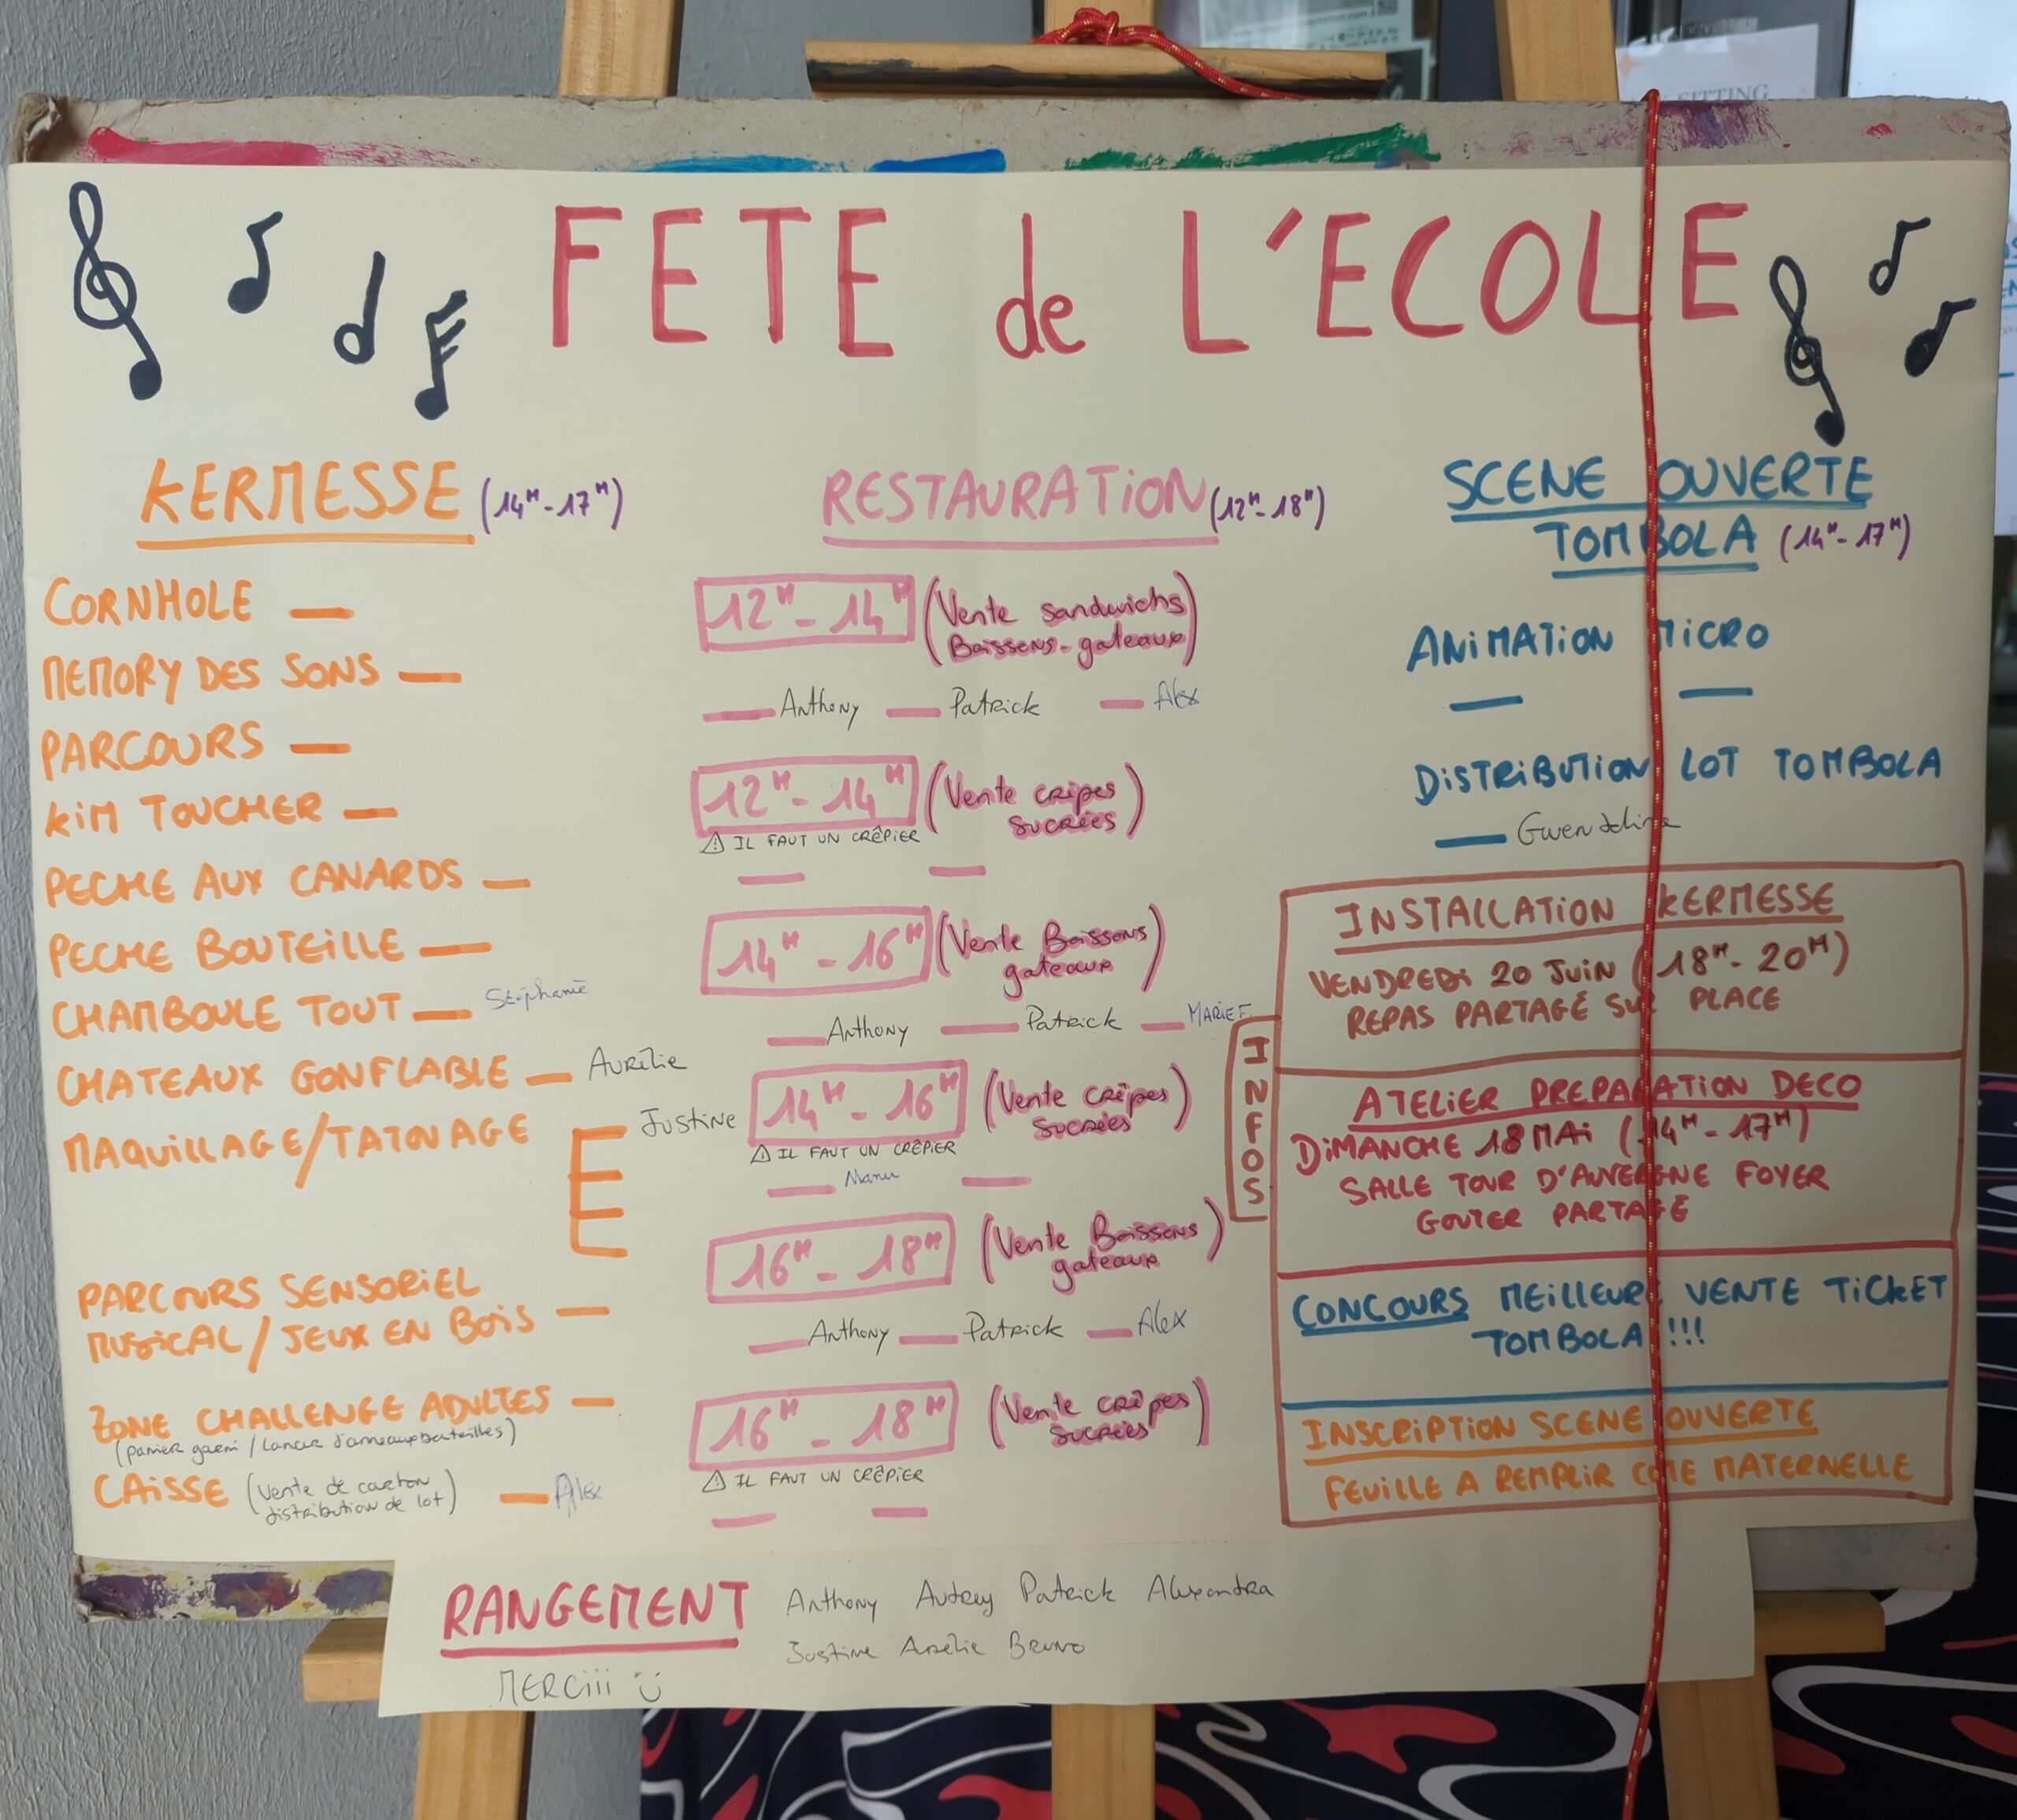 SITTING
FETE de L'ECOLE
KERMESSE (14H-17H)
CORNHOLE —
MEMORY DES SONS —
PARCOURS —
KIM TOUCHER —
PECHE AUX CANARDS —
PECHE BOUTEILLE —
CHAMBOULE TOUT — Stéphanie
CHATEAUX GONFLABLE — Aurélie
MAQUILLAGE/TATOUAGE Justine
PARCOURS SENSORIEL
MUSICAL / JEUX EN BOIS —
ZONE CHALLENGE ADULTES —
(panier garni / Lancer d'anneaux bouteilles)
CAISSE (vente de carton
distribution de lot) — Alex
RESTAURATION (12H-18H)
12H-14H (Vente sandwichs
Boissons-gateaux)
— Anthony — Patrick — Alex
12H-14H (Vente crêpes
sucrées)
⚠ IL FAUT UN CRÊPIER
— —
14H-16H (Vente Boissons
gateaux)
— Anthony — Patrick — MARIE F.
14H-16H (Vente crêpes
sucrées)
⚠ IL FAUT UN CRÊPIER
— Manu —
16H-18H (Vente Boissons
gateaux)
— Anthony — Patrick — Alex
16H-18H (Vente crêpes
sucrées)
⚠ IL FAUT UN CRÊPIER
— —
SCENE OUVERTE
TOMBOLA (14H-17H)
ANIMATION MICRO
— —
DISTRIBUTION LOT TOMBOLA
— Gwendoline
INFOS
INSTALLATION KERMESSE
VENDREDI 20 JUIN (18H-20H)
REPAS PARTAGÉ SUR PLACE
ATELIER PREPARATION DECO
DIMANCHE 18 MAI (14H-17H)
SALLE TOUR D'AUVERGNE FOYER
GOUTER PARTAGÉ
CONCOURS MEILLEURE VENTE TICKET
TOMBOLA !!!
INSCRIPTION SCENE OUVERTE
FEUILLE A REMPLIR COTE MATERNELLE
RANGEMENT Anthony Audrey Patrick Alexandra
Justine Aurélie Bruno
MERCiii